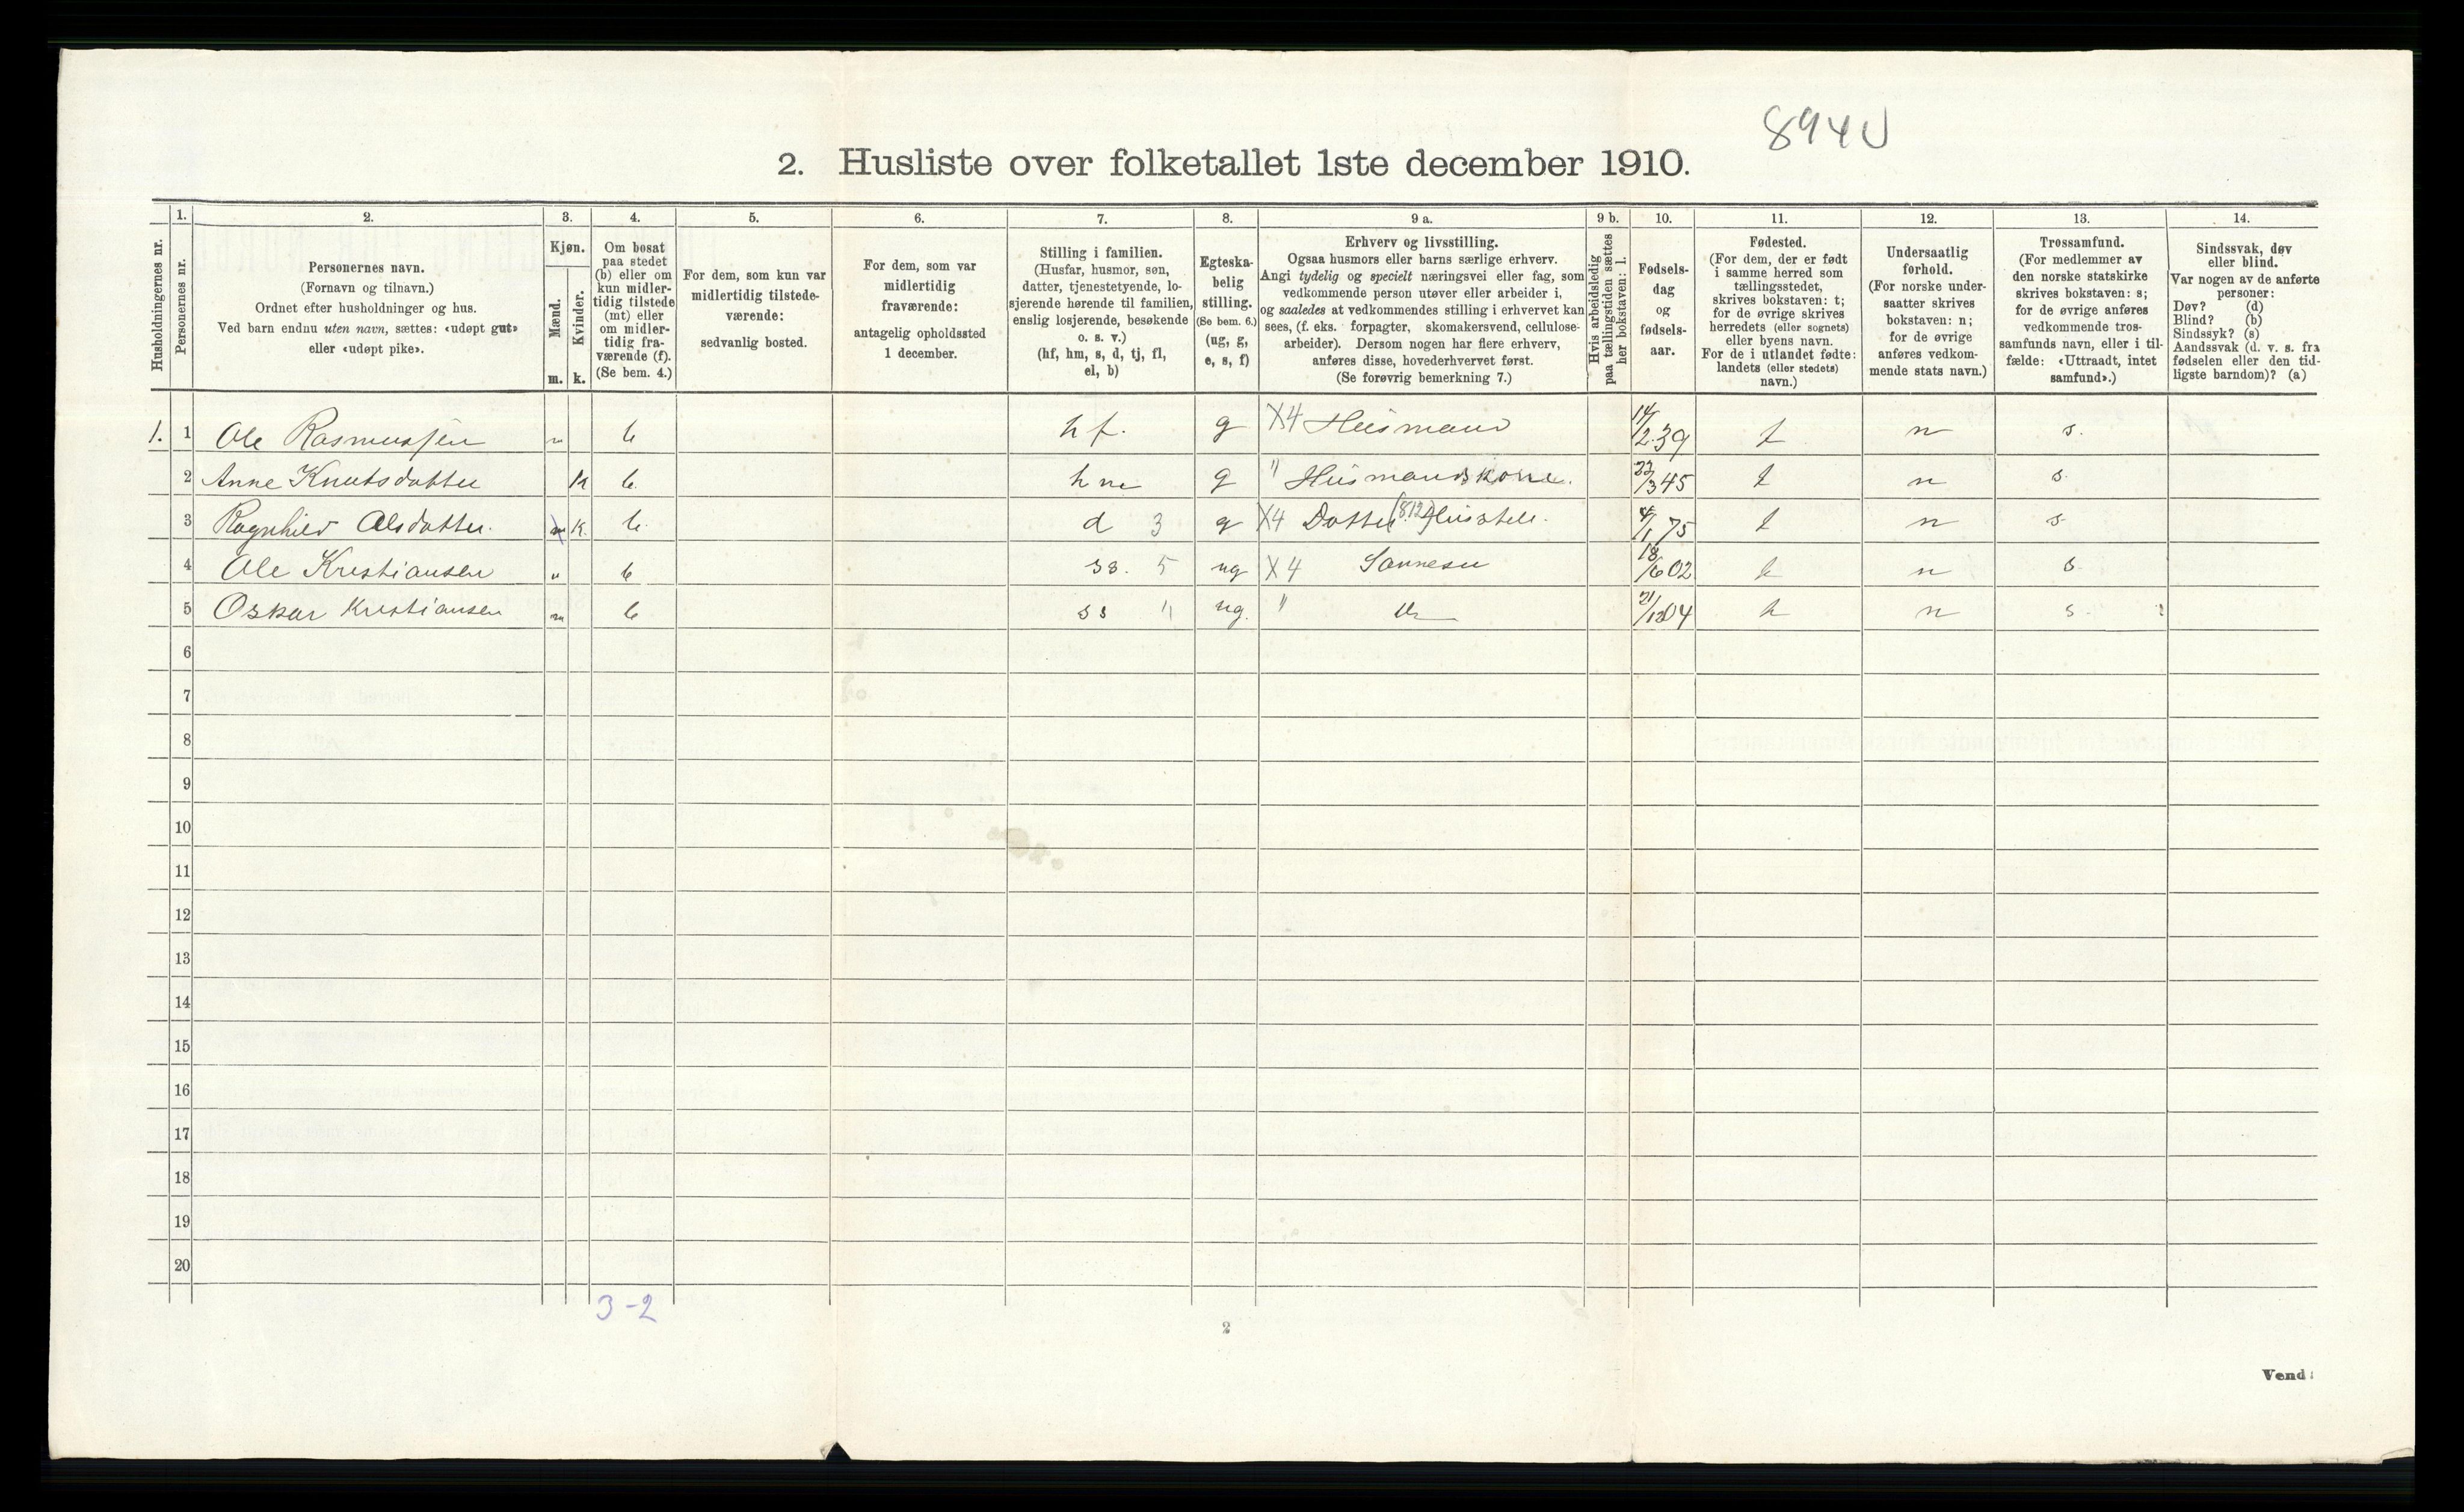 894 U
2. Husliste over folketallet 1ste december 1910.
Husholdningernes nr.
1. Personernes nr.
2.
Personernes navn.
(Fornavn og tilnavn.)
Ordnet efter husholdninger og hus.
Ved barn endnu uten navn, sættes: «udøpt gut»
eller «udøpt pike».
3.
Kjøn.
Mænd. Kvinder.
m. k.
4.
Om bosat
paa stedet
(b) eller om
kun midler-
tidig tilstede
(mt) eller
om midler-
tidig fra-
værende (f).
(Se bem. 4.)
5.
For dem, som kun var
midlertidig tilstede-
værende:
sedvanlig bosted.
6.
For dem, som var
midlertidig
fraværende:
antagelig opholdssted
1 december.
7.
Stilling i familien.
(Husfar, husmor, søn,
datter, tjenestetyende, lo-
sjerende hørende til familien,
enslig losjerende, besøkende
o. s. v.)
(hf, hm, s, d, tj, fl,
el, b)
8.
Egteska-
belig
stilling.
(Se bem. 6.)
(ug, g,
e, s, f)
9 a.
Erhverv og livsstilling.
Ogsaa husmors eller barns særlige erhverv.
Angi tydelig og specielt næringsvei eller fag, som
vedkommende person utøver eller arbeider i,
og saaledes at vedkommendes stilling i erhvervet kan
sees, (f. eks. forpagter, skomakersvend, cellulose-
arbeider). Dersom nogen har flere erhverv,
anføres disse, hovederhvervet først.
(Se forøvrig bemerkning 7.)
9 b.
Hvis arbeidsledig
paa tællingstiden sættes
her bokstaven: l.
10.
Fødsels-
dag
og
fødsels-
aar.
11.
Fødested.
(For dem, der er født
i samme herred som
tællingsstedet,
skrives bokstaven: t;
for de øvrige skrives
herredets (eller sognets)
eller byens navn.
For de i utlandet fødte:
landets (eller stedets)
navn.)
12.
Undersaatlig
forhold.
(For norske under-
saatter skrives
bokstaven: n;
for de øvrige
anføres vedkom-
mende stats navn.)
13.
Trossamfund.
(For medlemmer av
den norske statskirke
skrives bokstaven: s;
for de øvrige anføres
vedkommende tros-
samfunds navn, eller i til-
fælde: «Uttraadt, intet
samfund».)
14.
Sindssvak, døv
eller blind.
Var nogen av de anførte
personer:
Døv? (d)
Blind? (b)
Sindssyk? (s)
Aandssvak (d. v. s. fra
fødselen eller den tid-
ligste barndom)? (a)
1. 1 Ole Rasmussen m b hf. g X4 Husmand 14/2.39 t n s.
2 Anne Knutsdatter K b. hm g " Husmandskone. 22/3 45 t n s.
3 Ragnhild Olsdatter. m K. b. d 3 g X4 Datter (812) Husstell. 4/1 75 t n s
4 Ole Kristiansen " b ss. 5 ug X4 Sønnesøn 18/6 02 t n s.
5 Oskar Kristiansen m b ss " ug. " 21/12 04 t n s.
6
7
8
9
10
11
12
13
14
15
16
17
18
19
20
3-2
2
Vend!